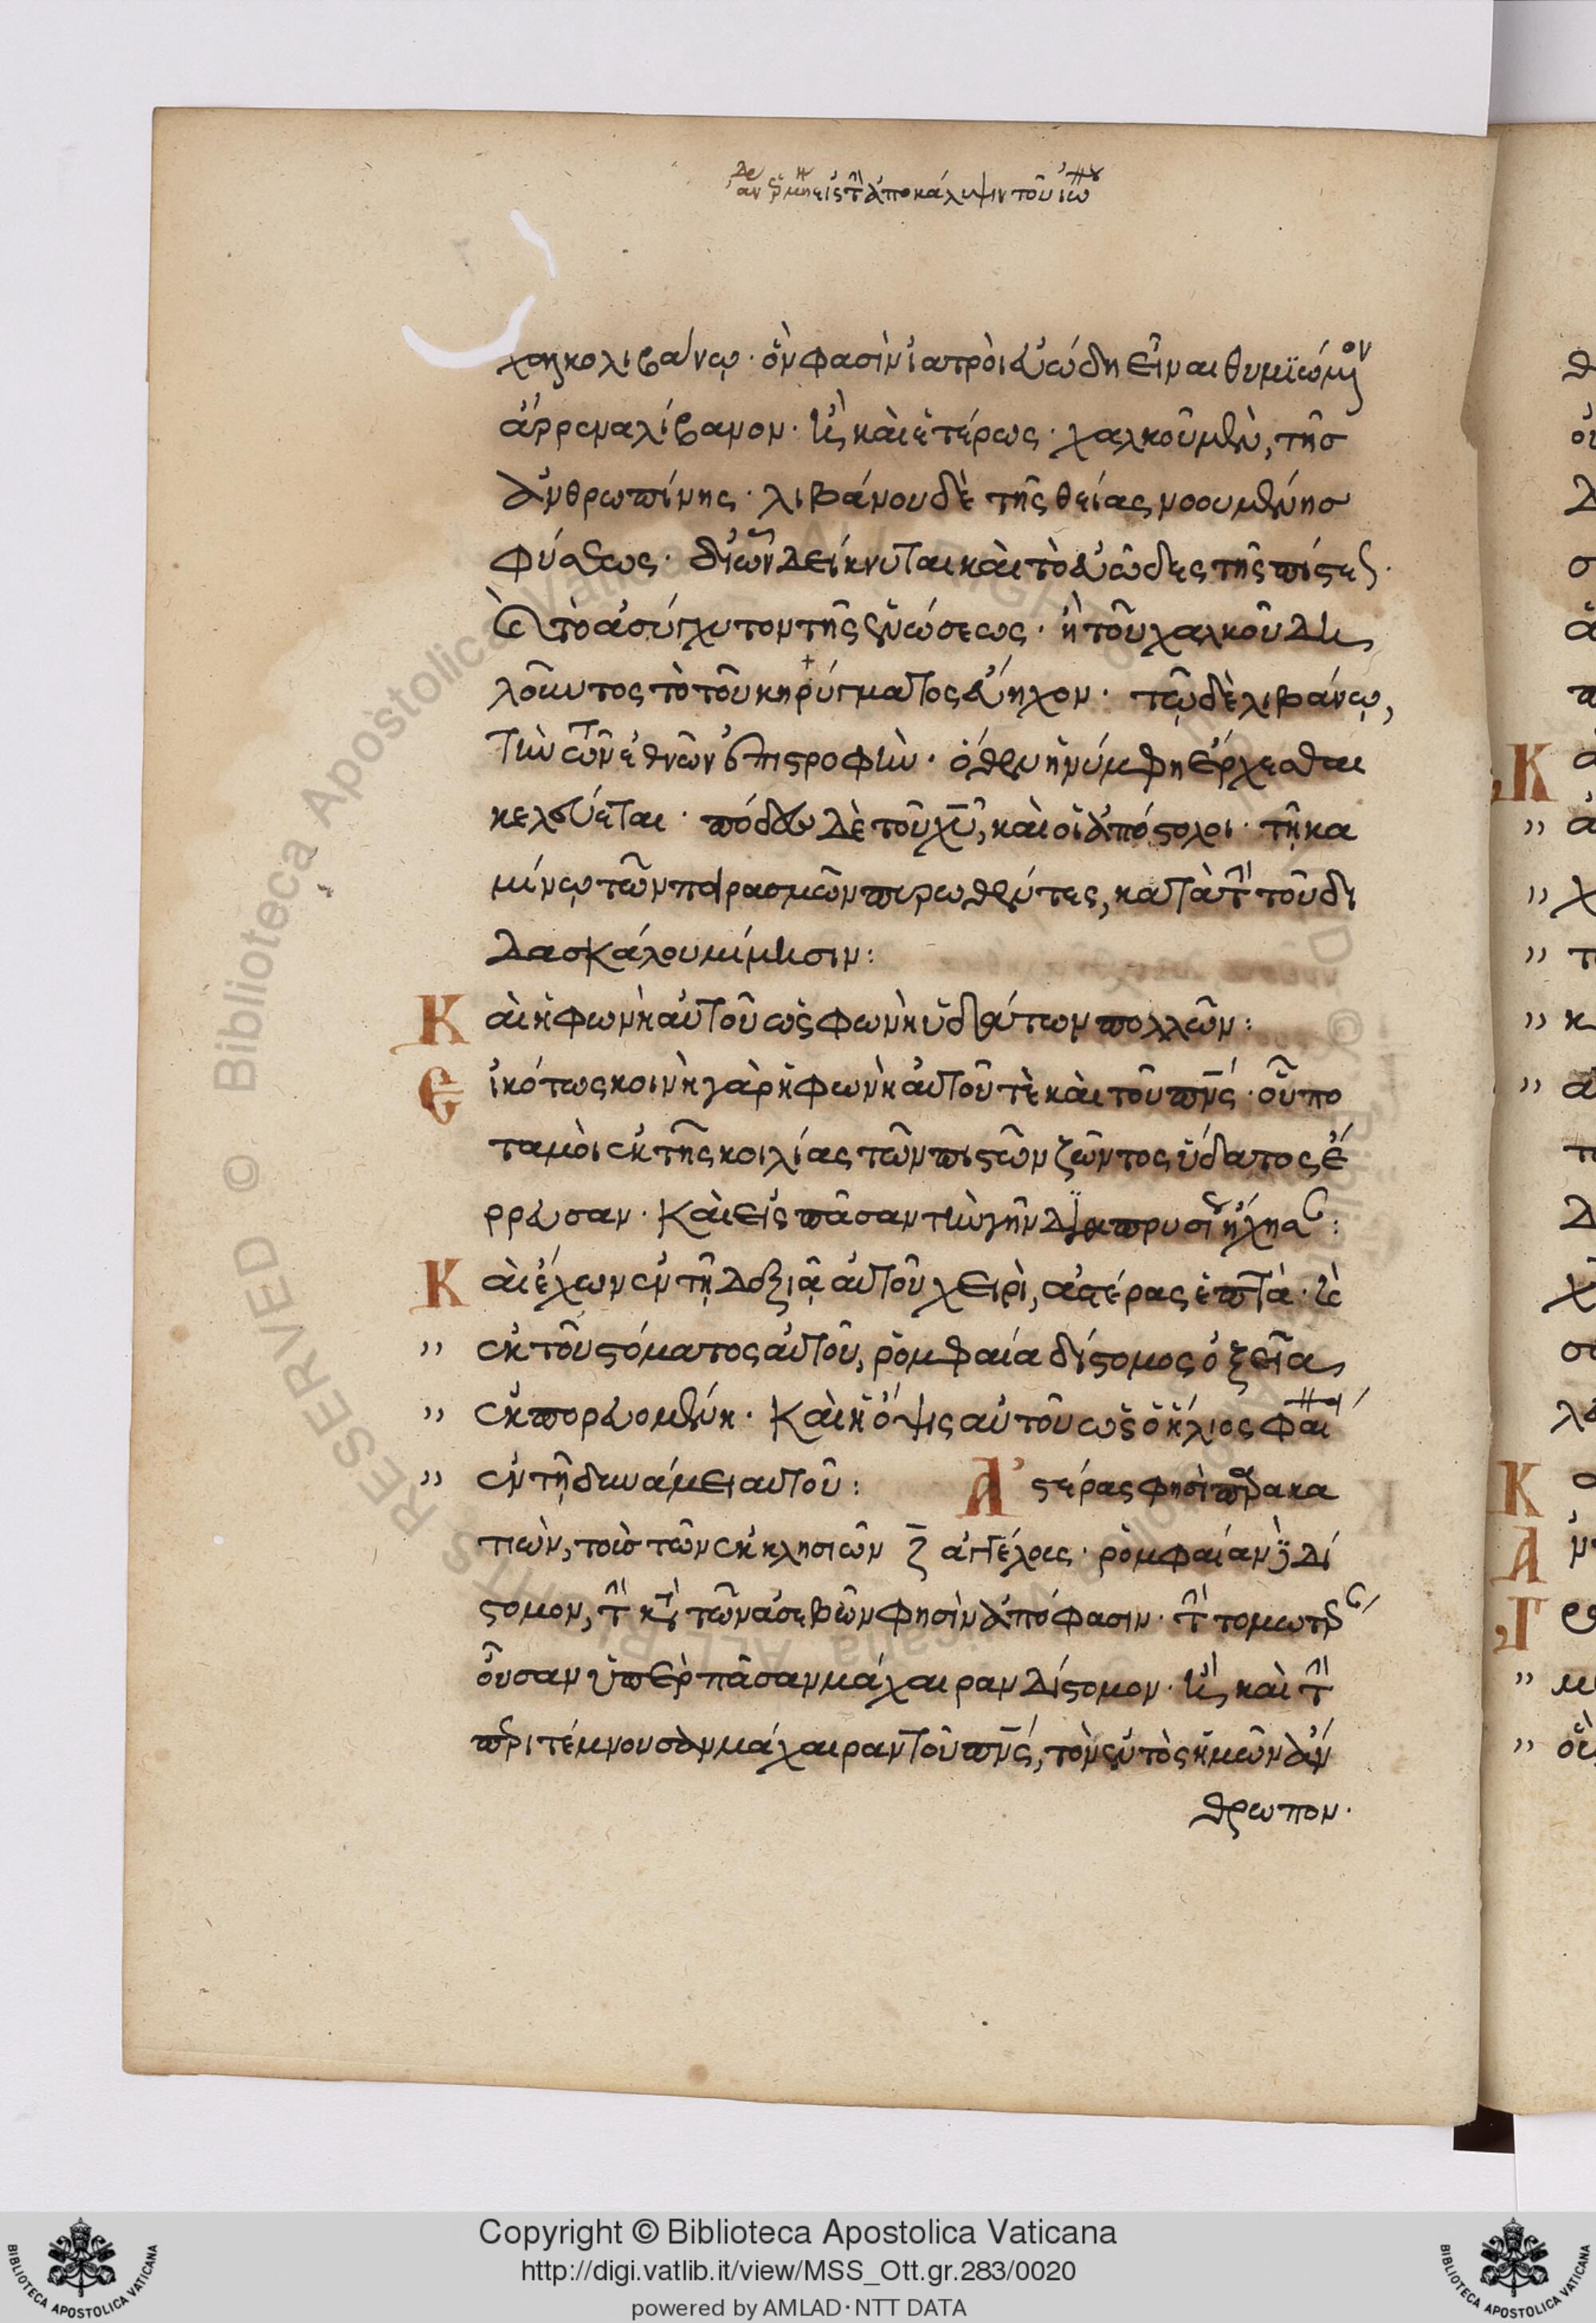 χαλκολιβάνῳ· ὃν φασὶν ἰατροὶ εὐώδη εἶναι θυμιώμενον
ἄρρενα λίβανον· ἢ καὶ ἑτέρως· χαλκοῦ μὲν, τῆς
ἀνθρωπίνης· λιβάνου δὲ τῆς θείας νοουμένης
φύσεως· δι' ὧν δείκνυται καὶ τὸ εὐῶδες τῆς πίστεως·
καὶ τὸ ἀσύγχυτον τῆς ἑνώσεως· ἢ τοῦ χαλκοῦ δη
λοῦντος τὸ τοῦ κηρύγματος εὔηχον· τῷ δὲ λιβάνῳ,
τὴν τῶν ἐθνῶν ἐπιστροφὴν· ὅθεν ἡ νύμφη ἔρχεσθαι
κελεύεται· πόδες δὲ τοῦ χυ, καὶ οἱ ἀπόστολοι· τῇ κα
μίνῳ τῶν πειρασμῶν πυρωθέντες, κατὰ τὴν τοῦ δι
δασκάλου μίμησιν:
Καὶ ἡ φωνὴ αὐτοῦ ὡς φωνὴ ὑδάτων πολλῶν:
Εἰκότως κοινὴ γὰρ ἡ φωνὴ αὐτοῦ τὲ καὶ τοῦ πνς· οὗ πο
ταμοὶ ἐκ τῆς κοιλίας τῶν πιστῶν ζῶντος ὕδατος ἔ
ρρευσαν· Καὶ εἰς πᾶσαν τὴν γῆν διαπρυσίως ἤχησαν:
Καὶ ἔχων ἐν τῇ δεξιᾷ αὐτοῦ χειρὶ, ἀστέρας ἑπτὰ· καὶ
" ἐκ τοῦ στόματος αὐτοῦ, ῥομφαία δίστομος ὀξεῖα
" ἐκπορευομένη· Καὶ ἡ ὄψις αὐτοῦ ὡς ὁ ἥλιος φαίνει
" ἐν τῇ δυνάμει αὐτοῦ: Ἀστέρας φησὶ παρακα
τιὼν, τοὺς τῶν ἐκκλησιῶν ζ ἀγγέλους· ῥομφαίαν δὲ δί
στομον, τὴν κατὰ τῶν ἀσεβῶν φησὶν ἀπόφασιν· τὴν τομωτέραν
οὖσαν ὑπὲρ πᾶσαν μάχαιραν δίστομον· ἢ καὶ τὴν
περιτέμνουσαν μάχαιραν τοῦ πνς, τὸν ἐντὸς ἡμῶν ἄν
θρωπον.
Copyright © Biblioteca Apostolica Vaticana
http://digi.vatlib.it/view/MSS_Ott.gr.283/0020
powered by AMLAD·NTT DATA